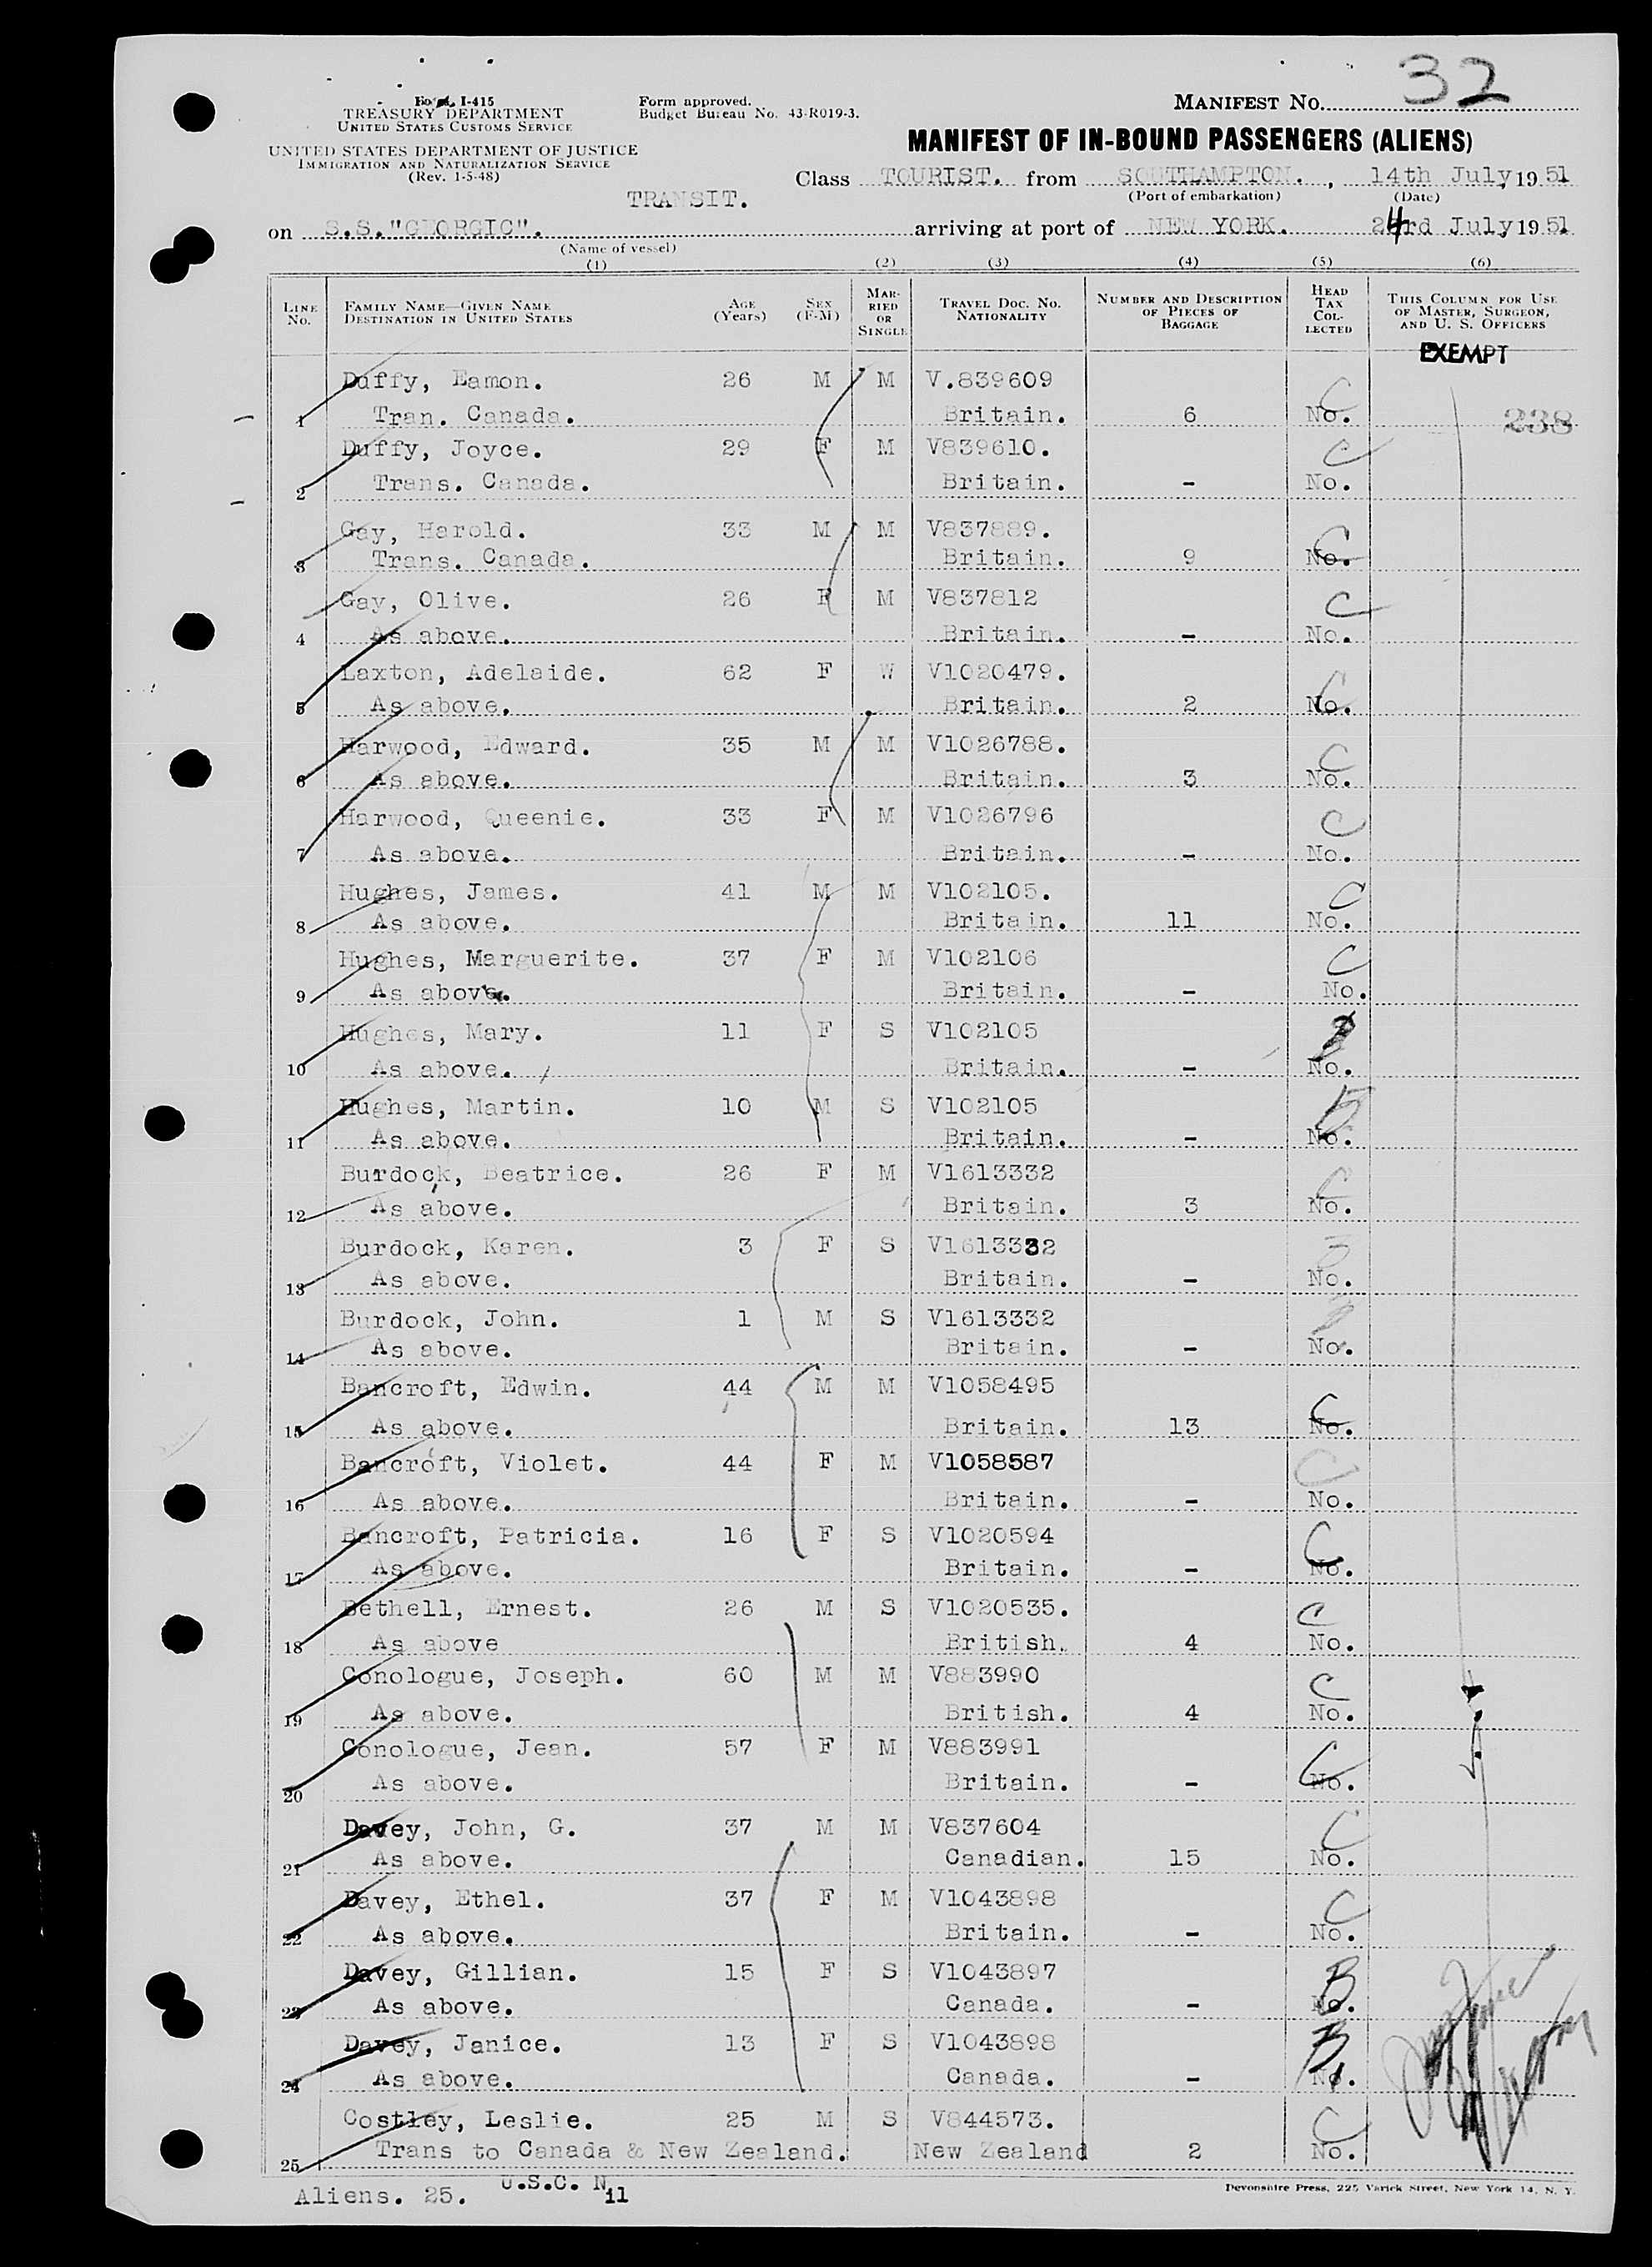 32
Form I-415
TREASURY DEPARTMENT
UNITED STATES CUSTOMS SERVICE
UNITED STATES DEPARTMENT OF JUSTICE
IMMIGRATION AND NATURALIZATION SERVICE
(Rev. 1-5-48)
Form approved.
Budget Bureau No. 43-R019-3.
MANIFEST NO.
MANIFEST OF IN-BOUND PASSENGERS (ALIENS)
Class TOURIST. from SOUTHAMPTON. , 14th July, 19 51
(Port of embarkation) (Date)
TRANSIT.
on S.S."GEORGIC". arriving at port of NEW YORK. 24rd July 19 51
(Name of vessel)
(1) (2) (3) (4) (5) (6)
LINE NO. FAMILY NAME—GIVEN NAME DESTINATION IN UNITED STATES AGE (Years) SEX (F-M) MARRIED OR SINGLE TRAVEL DOC. NO. NATIONALITY NUMBER AND DESCRIPTION OF PIECES OF BAGGAGE HEAD TAX COLLECTED THIS COLUMN FOR USE OF MASTER, SURGEON, AND U. S. OFFICERS
EXEMPT
Duffy, Eamon. 26 M M V.839609 C
1 Tran. Canada. Britain. 6 No. 238
Duffy, Joyce. 29 F M V839610. C
2 Trans. Canada. Britain. - No.
Gay, Harold. 33 M M V837889. C
3 Trans. Canada. Britain. 9 No.
Gay, Olive. 26 F M V837812 C
4 As above. Britain. - No.
Laxton, Adelaide. 62 F W V1020479. C
5 As above. Britain. 2 No.
Harwood, Edward. 35 M M V1026788. C
6 As above. Britain. 3 No.
Harwood, Queenie. 33 F M V1026796 C
7 As above. Britain. - No.
Hughes, James. 41 M M V102105. C
8 As above. Britain. 11 No.
Hughes, Marguerite. 37 F M V102106 C
9 As above. Britain. - No.
Hughes, Mary. 11 F S V102105
10 As above. Britain. - No.
Hughes, Martin. 10 M S V102105
11 As above. Britain. - No.
Burdock, Beatrice. 26 F M V1613332 C
12 As above. Britain. 3 No.
Burdock, Karen. 3 F S V1613332
13 As above. Britain. - No.
Burdock, John. 1 M S V1613332
14 As above. Britain. - No.
Bancroft, Edwin. 44 M M V1058495 C
15 As above. Britain. 13 No.
Bancroft, Violet. 44 F M V1058587 C
16 As above. Britain. - No.
Bancroft, Patricia. 16 F S V1020594 C
17 As above. Britain. - No.
Bethell, Ernest. 26 M S V1020535. C
18 As above British. 4 No.
Conologue, Joseph. 60 M M V883990 C
19 As above. British. 4 No.
Conologue, Jean. 57 F M V883991 C
20 As above. Britain. - No.
Davey, John, G. 37 M M V837604 C
21 As above. Canadian. 15 No.
Davey, Ethel. 37 F M V1043898 C
22 As above. Britain. - No.
Davey, Gillian. 15 F S V1043897 B
23 As above. Canada. - No.
Davey, Janice. 13 F S V1043898 B
24 As above. Canada. - No.
Costley, Leslie. 25 M S V844573. C
25 Trans to Canada & New Zealand. New Zealand 2 No.
Aliens. 25. U.S.C. Nil
Devonshire Press, 225 Varick Street, New York 14, N. Y.